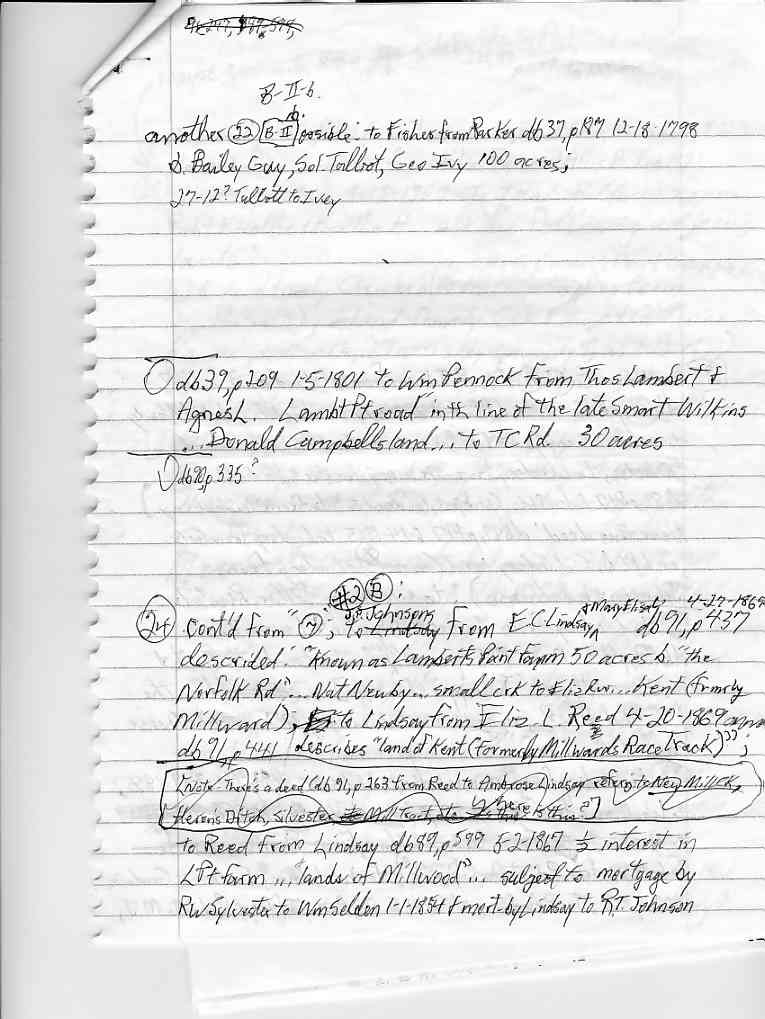 B-II-b.
another 22 B-II b. possible: to Fisher from Parker db37, p187 12-18-1798
b. Bailey Guy, Sol. Talbot, Geo Ivy 100 acres;
27-12? Talbott to Ivey
db39, p209 1-5-1801 to Wm Pennock from Thos Lambert &
Agnes L. "Lambt Pt road" in th line of the late Smart Wilkins
...Donald Campbells land... to TC Rd. 30 acres
db90, p335?
#2 B:
24 cont'd from "7"; to J.R. Johnson from E C Lindsay & Mary Elisab. 4-27-1869 db91, p437
descrided: "Known as Lamberts Point Farm 50 acres b. "the
Norfolk Rd"... Nat Newby... small crk to Eliz Rv... Kent (frmrly
Millward); to Lindsay from Eliz. L. Reed 4-20-1869
db91, p441 describes "land of Kent (formerly Millwards Race Track)";
[Note- There's a deed (db91, p263 from Reed to Ambrose Lindsay refern to New Mill Ck,
Heren's Ditch, Silvester Mill Tract, Where is this?]
to Reed from Lindsay db89, p599 8-2-1867 ½ interest in
L Pt farm ... "lands of Millwood"... subject to mortgage by
RW Sylvester to Wm Selden 1-1-1854 & mort. by Lindsay to R.T. Johnson